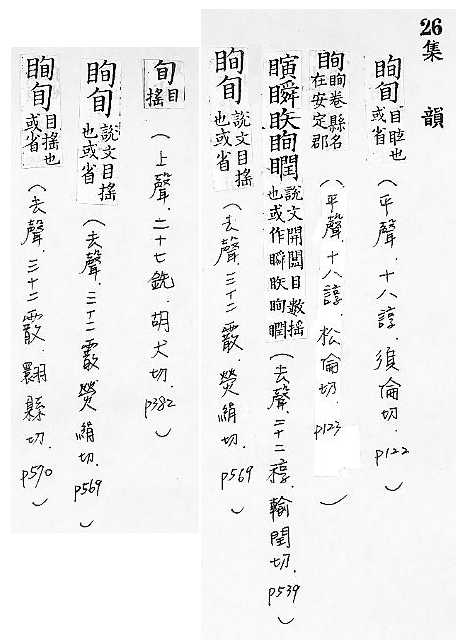 26 集韻
眴旬 目眩也或省（平聲．十八諄．須倫切．p122）
眴 眴卷縣名在安定郡（平聲．十八諄．松倫切．p123）
瞚瞬眣眴瞤 說文開闔目數搖也或作瞬眣眴瞤（去聲．二十二稕．輸閏切．p539）
眴旬 說文目搖也或省（去聲．三十二霰．熒絹切．p569）
旬 目搖（上聲．二十七銑．胡犬切．p382）
眴旬 說文目搖也或省（去聲．三十二霰．熒絹切．p569）
眴旬 目搖也或省（去聲．三十二霰．翾縣切．p570）